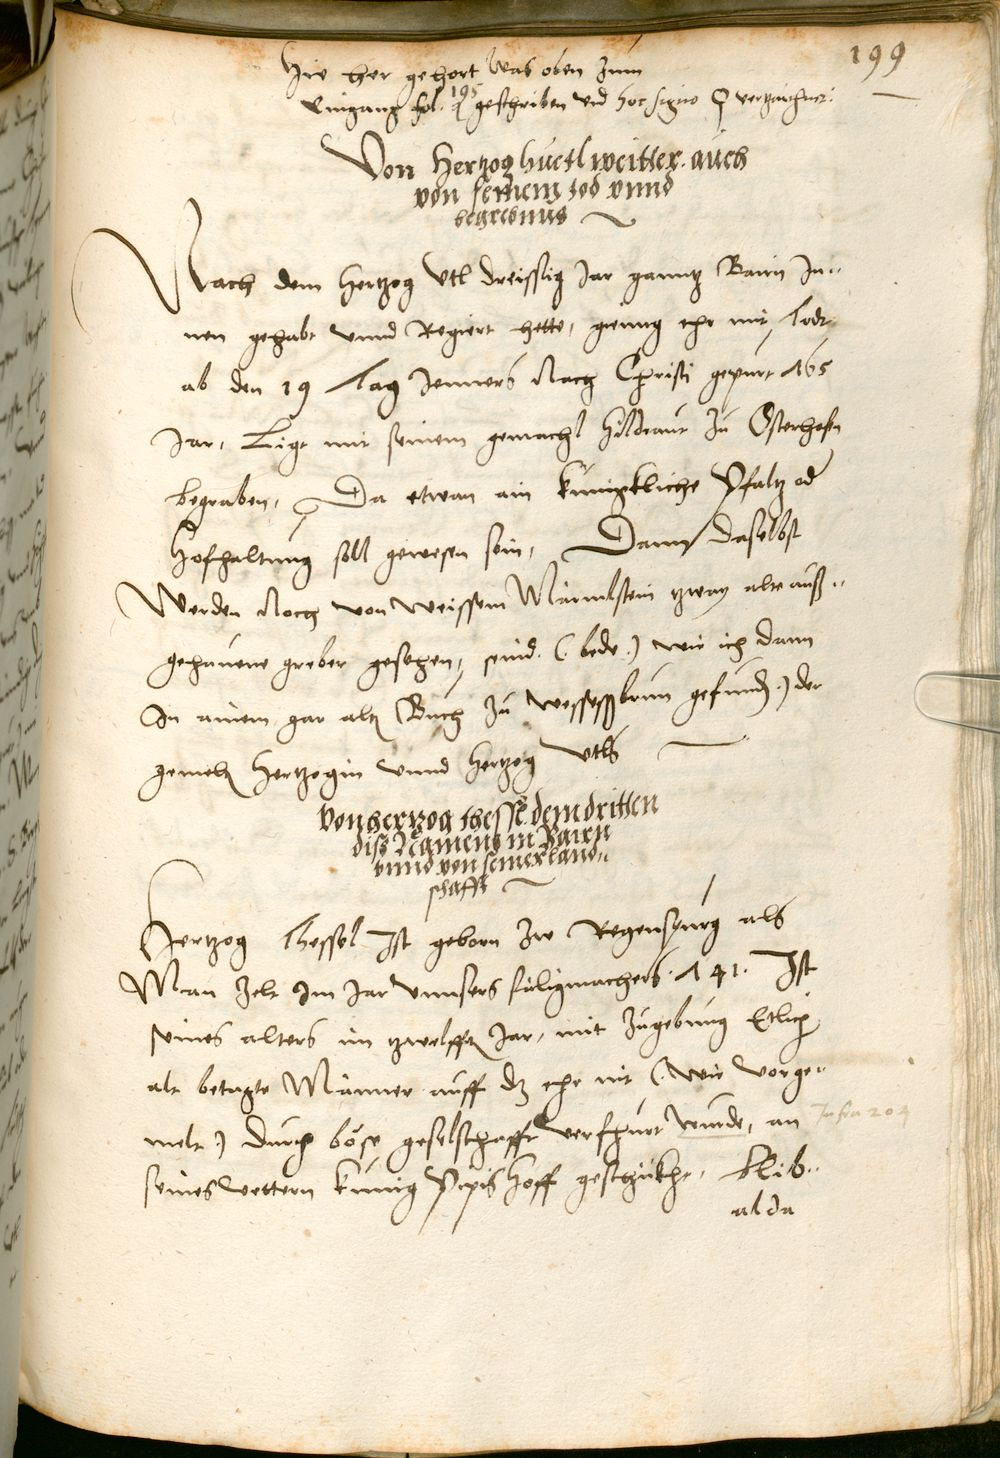 199
Hie her gehort was oben zum
Eingang fol. 195 geschriben und hoc signo verzaichnet.
Von Hertzog huetl weitter. auch
von seinem tod vnnd
begrebnus
Nach dem Hertzog Vtl dreissig Jar ganntz Bairn In-
nen gehabt vnnd Regiert hette, gienng ehr mit todt
ab den 19 tag Jenners Nach Christi gepurt 765
Jar, Ligt mit seinem gemachl Hildraut zu Osterhofn
begraben, Da etwan ain kunigkliche Pfaltz od
Hofhaltung soll gewesen sein, Dann daselbst
Werden Noch von weissem Märmlstein zway alte auß-
gehauene greber gesehen, seind (bede) wie ich dann
In ainem gar altn Buch zu wessessbrun gefundn) der
gemeltn Hertzogin vnnd Hertzog Vtls
von hertzog thessel dem dritten
diss Namens in Bairn
vnnd von seiner land-
schafft
Hertzog Thessel Ist geborn zw Regenspurg als
Man zelt Im Jar vnnsers säligmachers 741. Ist
seines alters im zwelfftn Jar, mit zugebung Etlich
alt betagte Männer auff dz ehr nit (wie vorge-
melt) durch böse geselschafft verfhurt wurde, an
Infra 204
seines vettern kunig Pipis Hoff geschickht, blib
alda